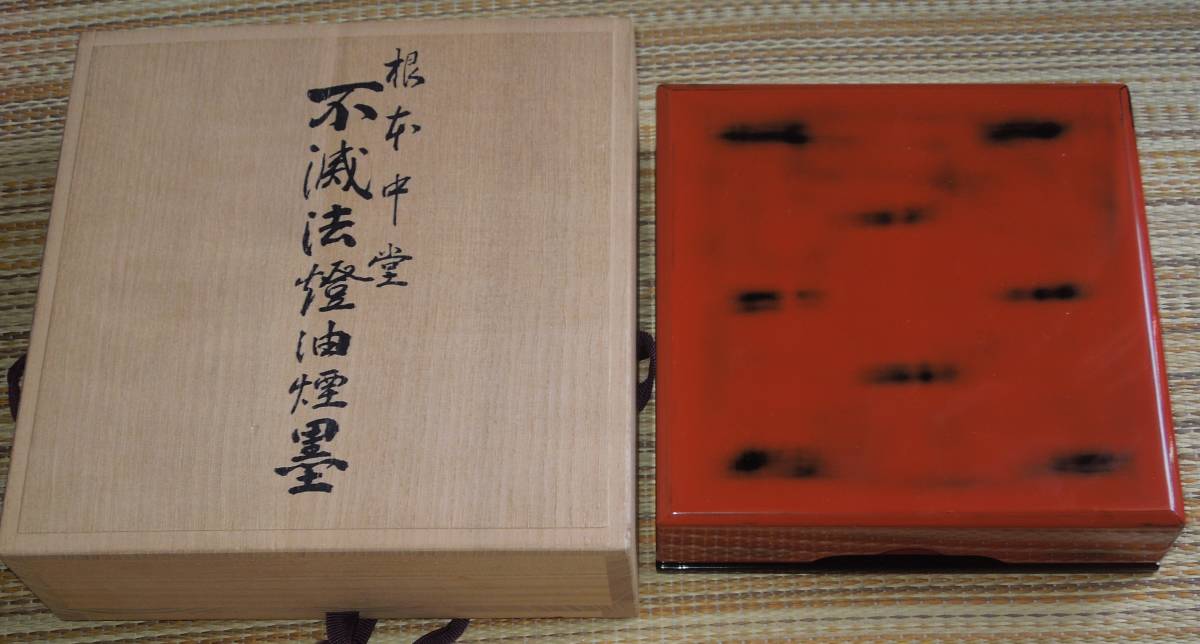 根本中堂
不滅法燈油煙墨